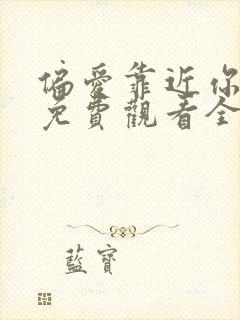 偏愛靠近你
免費觀看全
藍寶